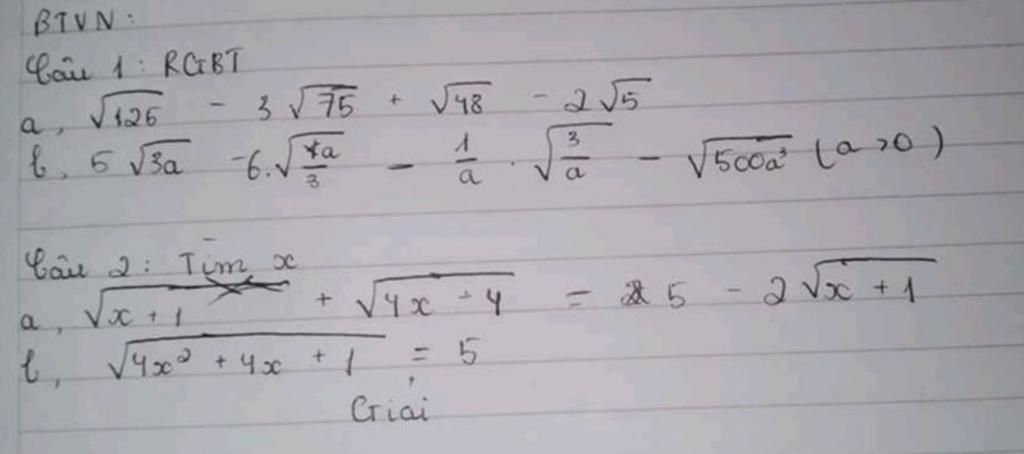 BTVN:
Câu 1: RGBT
a, √125 - 3√75 + √48 - 2√5
b, 5√3a - 6.√(4a/3) - 1/a . √(3/a) - √500a³ (a>0)
Câu 2: Tìm x
a, √x + 1 + √4x + 4 = 5 - 2√x + 1
b, √4x² + 4x + 1 = 5
Giải